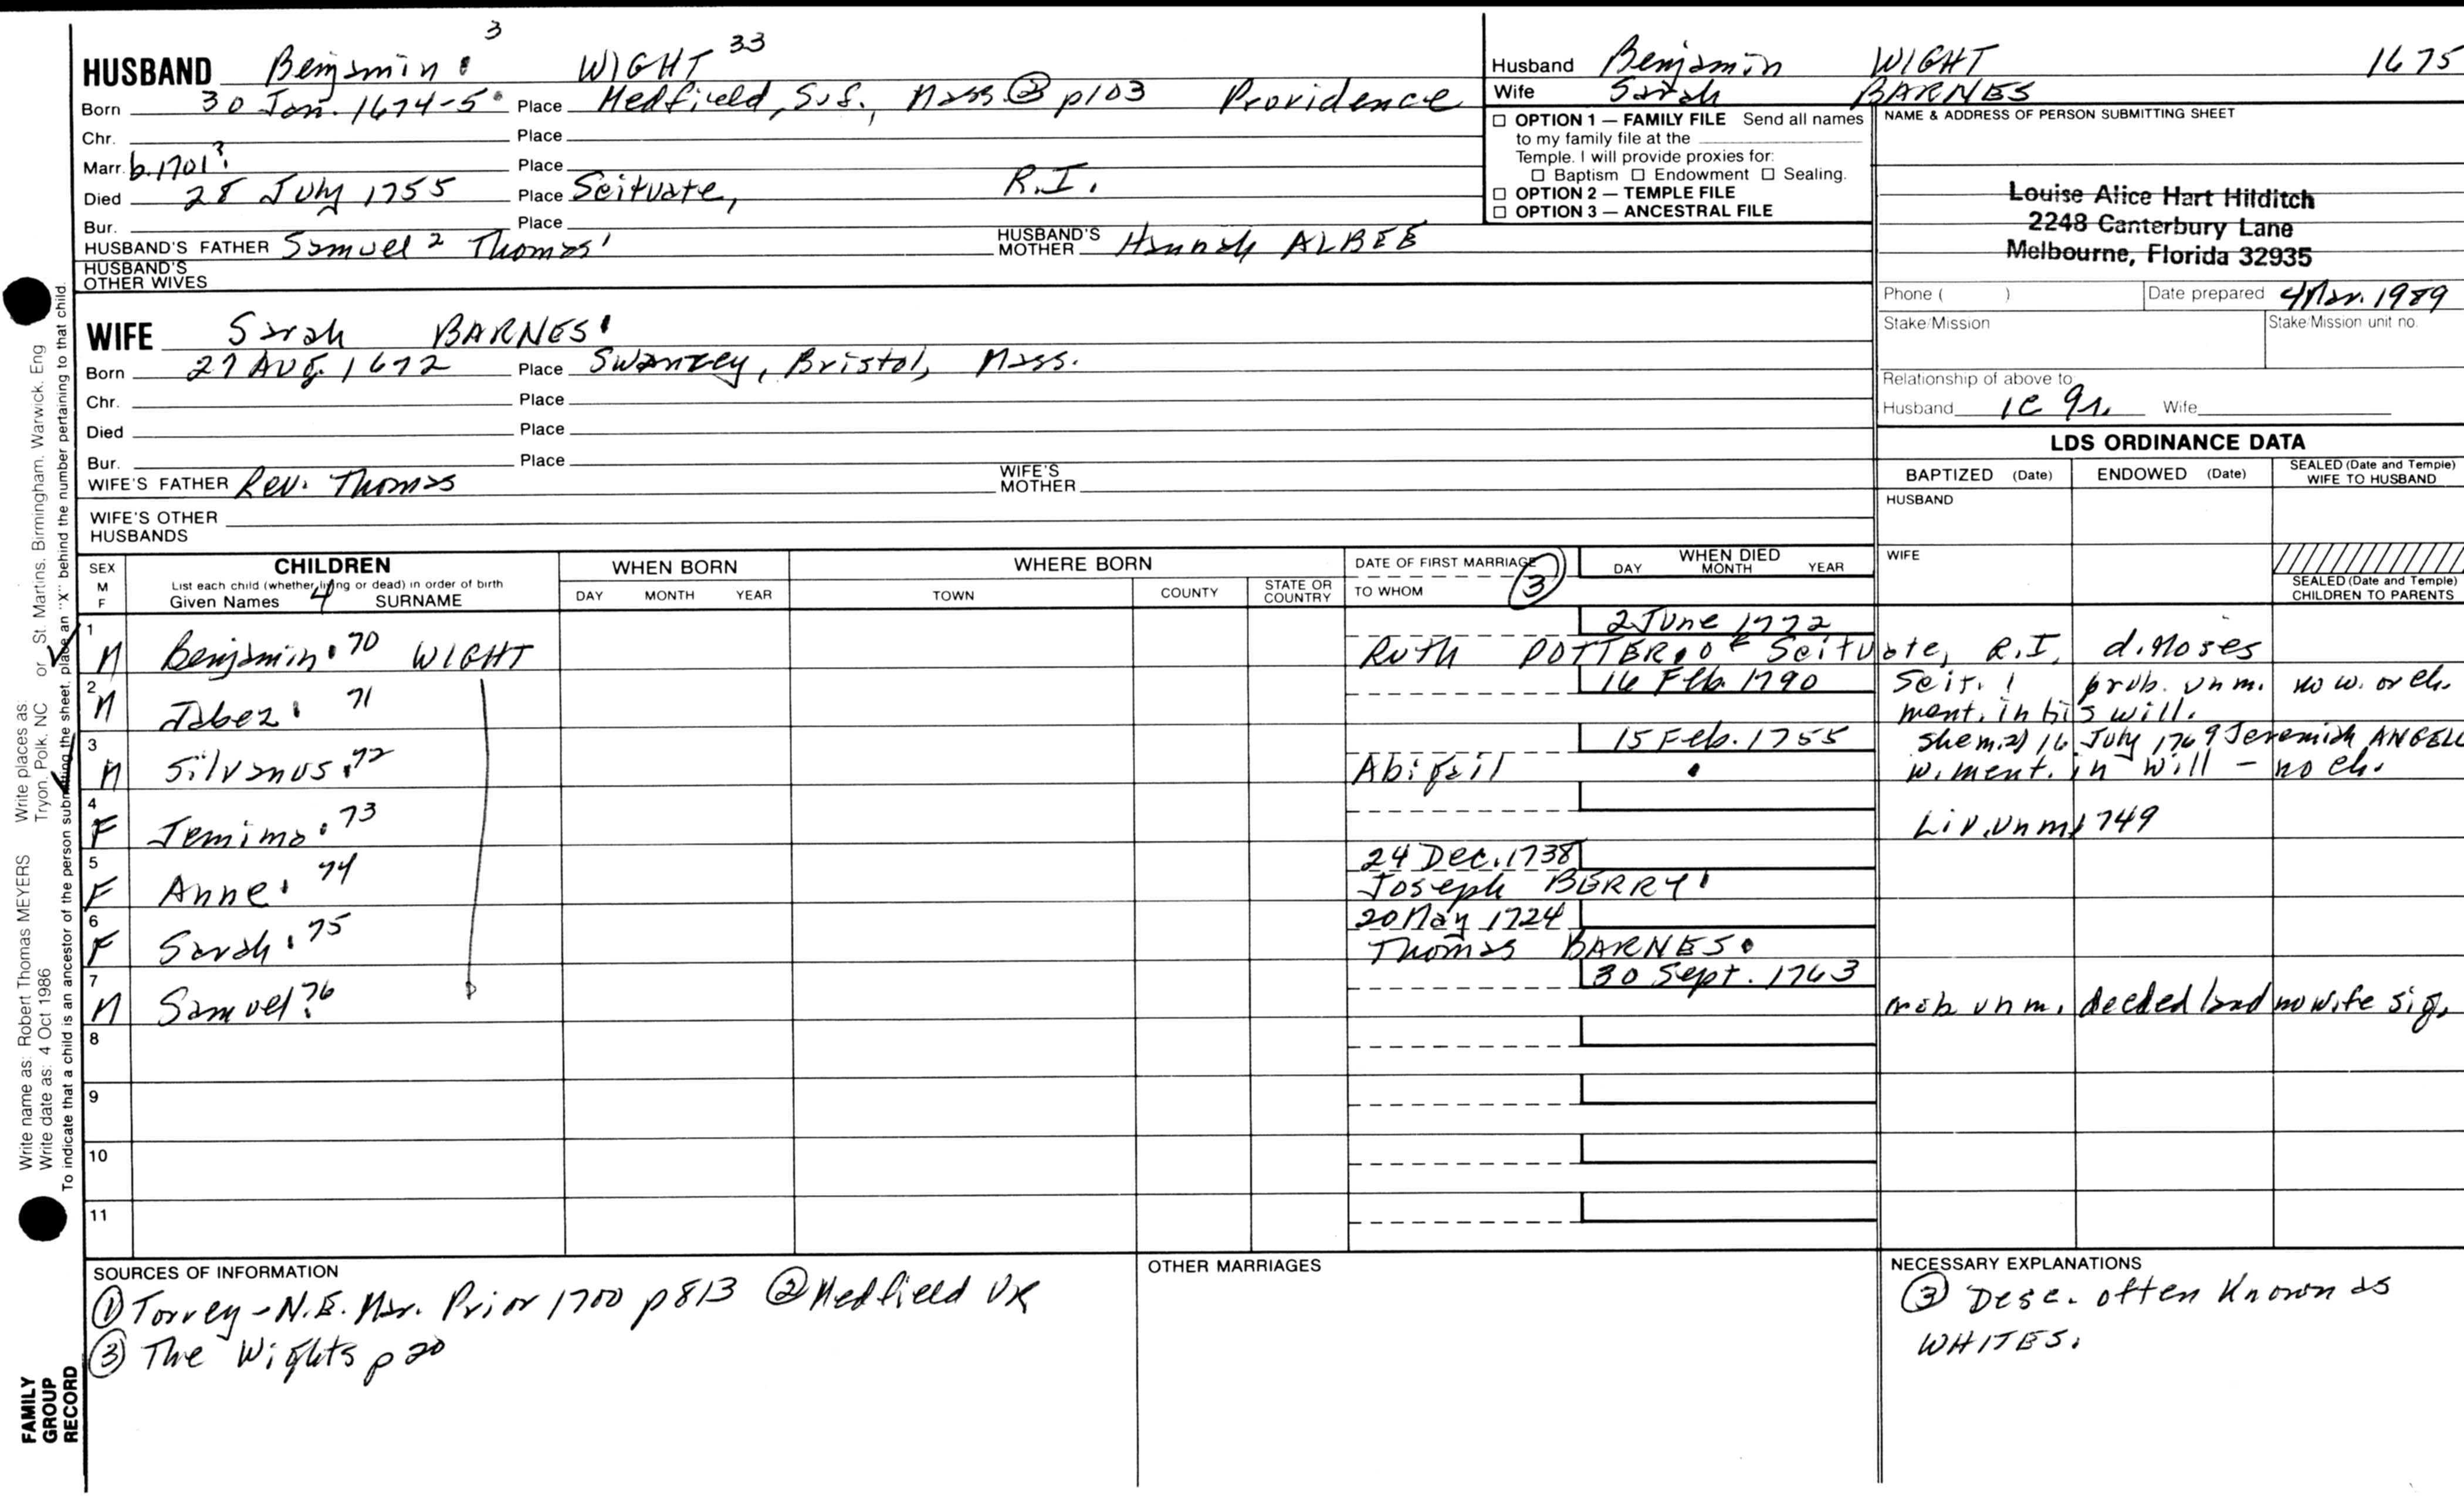 HUSBAND Benjamin 3 WIGHT 33
Born 30 Jan. 1674-5 Place Medfield, Suf., Mass. ② p103 Providence
Chr. Place
Marr. b. 1701? Place
Died 28 July 1755 Place Scituate, R.I.
Bur. Place
HUSBAND'S FATHER Samuel 2 Thomas 1 HUSBAND'S MOTHER Hannah ALBEE
HUSBAND'S OTHER WIVES
WIFE Sarah BARNES
Born 27 Aug. 1672 Place Swanzey, Bristol, Mass.
Chr. Place
Died Place
Bur. Place
WIFE'S FATHER Rev. Thomas WIFE'S MOTHER
WIFE'S OTHER HUSBANDS
Husband Benjamin WIGHT 1675
Wife Sarah BARNES
☐ OPTION 1 — FAMILY FILE Send all names
to my family file at the
Temple. I will provide proxies for:
☐ Baptism ☐ Endowment ☐ Sealing.
☐ OPTION 2 — TEMPLE FILE
☐ OPTION 3 — ANCESTRAL FILE
NAME & ADDRESS OF PERSON SUBMITTING SHEET
Louise Alice Hart Hilditch
2248 Canterbury Lane
Melbourne, Florida 32935
Phone ( ) Date prepared 4 Mar. 1989
Stake/Mission Stake/Mission unit no.
Relationship of above to
Husband 1c 9r. Wife
LDS ORDINANCE DATA
BAPTIZED (Date) ENDOWED (Date) SEALED (Date and Temple) WIFE TO HUSBAND
HUSBAND
WIFE
SEALED (Date and Temple) CHILDREN TO PARENTS
SEX M F
CHILDREN
List each child (whether living or dead) in order of birth
Given Names 4 SURNAME
WHEN BORN
DAY MONTH YEAR
WHERE BORN
TOWN COUNTY STATE OR COUNTRY
DATE OF FIRST MARRIAGE ③
TO WHOM
WHEN DIED
DAY MONTH YEAR
1 M Benjamin 70 WIGHT 2 June 1772
Ruth POTTER of Scituate, R.I. d. Moses
2 M Jabez 71 16 Feb. 1790 Scit. prob. unm. no w. or ch.
ment. in his will.
3 M Silvanus 72 15 Feb. 1755 She m. 2) 16 July 1769 Jeremiah ANGELL
Abigail w. ment. in will - no ch.
4 F Jemima 73 Liv. unm 1749
5 F Anne 74 24 Dec. 1738
Joseph BERRY
6 F Sarah 75 20 May 1724
Thomas BARNES
7 M Samuel 76 30 Sept. 1763
prob unm. deeded land no wife sig.
8
9
10
11
SOURCES OF INFORMATION
① Torrey - N.E. Mar. Prior 1700 p 813 ② Medfield VR
③ The Wights p 20
OTHER MARRIAGES
NECESSARY EXPLANATIONS
③ Desc. often known as
WHITES.
Write name as: Robert Thomas MEYERS Write places as:
Write date as: 4 Oct 1986 Tryon, Polk, NC or St. Martins, Birmingham, Warwick, Eng
To indicate that a child is an ancestor of the person submitting the sheet, place an "X" behind the number pertaining to that child.
FAMILY
GROUP
RECORD